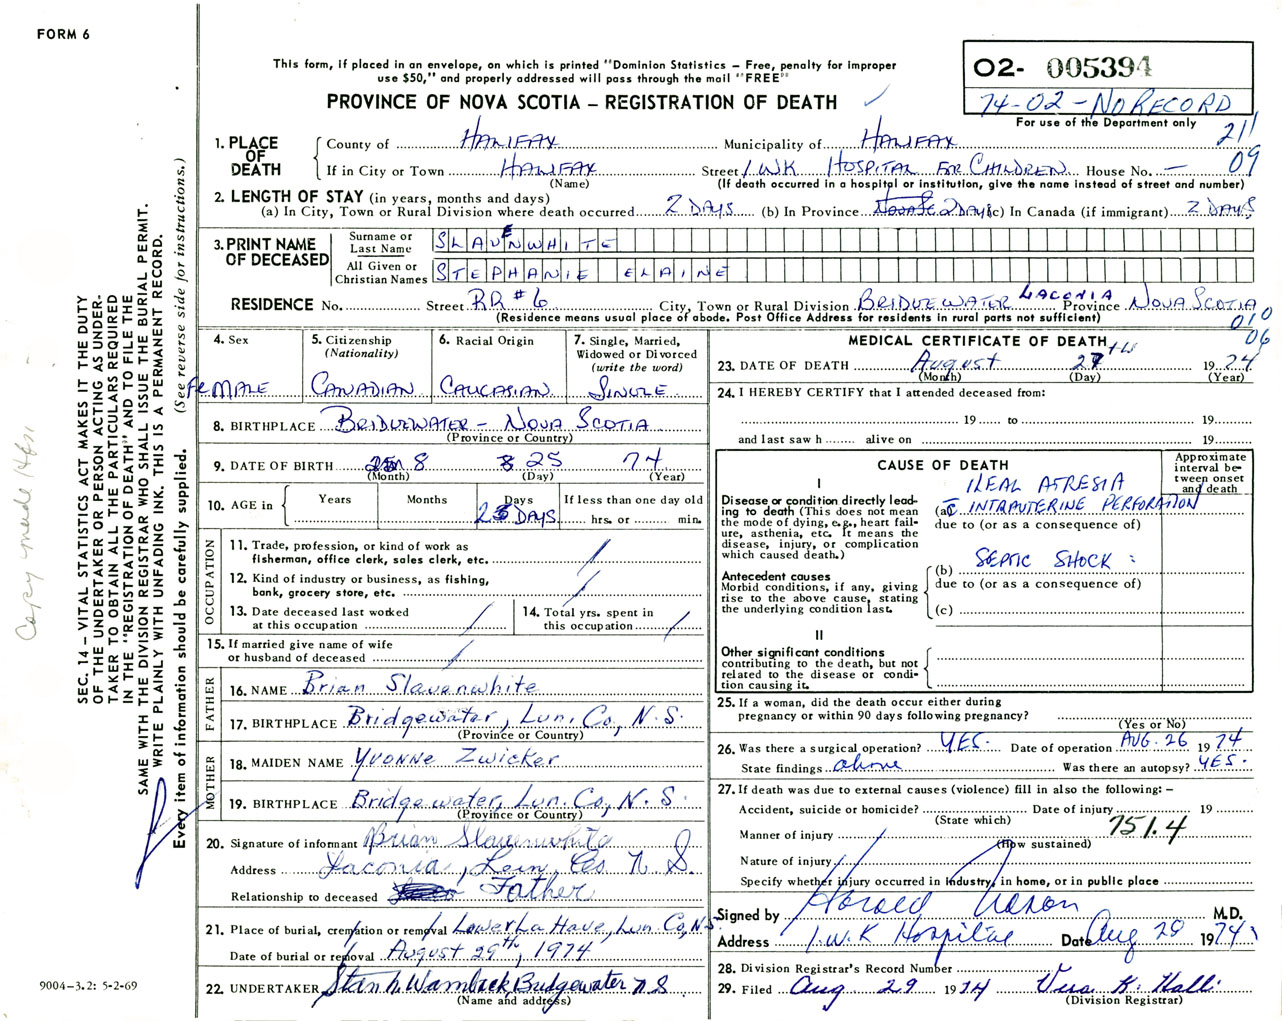 FORM 6
This form, if placed in an envelope, on which is printed "Dominion Statistics – Free, penalty for improper
use $50," and properly addressed will pass through the mail "FREE"
PROVINCE OF NOVA SCOTIA – REGISTRATION OF DEATH
02- 005394
74-02-NO RECORD
For use of the Department only
211
09
1. PLACE OF DEATH
County of HALIFAX Municipality of HALIFAX
If in City or Town HALIFAX Street I.W.K HOSPITAL FOR CHILDREN House No. —
(Name) (If death occurred in a hospital or institution, give the name instead of street and number)
2. LENGTH OF STAY (in years, months and days)
(a) In City, Town or Rural Division where death occurred 2 DAYS (b) In Province 2 DAYS (c) In Canada (if immigrant) 2 DAYS
3. PRINT NAME OF DECEASED
Surname or Last Name SLAUENWHITE
All Given or Christian Names STEPHANIE ELAINE
RESIDENCE No. Street RR #6 City, Town or Rural Division BRIDGEWATER LACONIA Province NOVA SCOTIA
(Residence means usual place of abode. Post Office Address for residents in rural parts not sufficient)
010
06
4. Sex
FEMALE
5. Citizenship
(Nationality)
CANADIAN
6. Racial Origin
CAUCASIAN
7. Single, Married,
Widowed or Divorced
(write the word)
SINGLE
8. BIRTHPLACE BRIDGEWATER – NOVA SCOTIA
(Province or Country)
9. DATE OF BIRTH 8 25 74
(Month) (Day) (Year)
10. AGE in Years Months Days If less than one day old
2 DAYS hrs. or min.
OCCUPATION
11. Trade, profession, or kind of work as
fisherman, office clerk, sales clerk, etc.
12. Kind of industry or business, as fishing,
bank, grocery store, etc.
13. Date deceased last worked
at this occupation
14. Total yrs. spent in
this occupation
15. If married give name of wife
or husband of deceased
FATHER
16. NAME Brian Slauenwhite
17. BIRTHPLACE Bridgewater, Lun. Co, N.S.
(Province or Country)
MOTHER
18. MAIDEN NAME Yvonne Zwicker
19. BIRTHPLACE Bridgewater, Lun. Co, N.S.
(Province or Country)
20. Signature of informant Brian Slauenwhite
Address Laconia, Lun, Co. N S.
Relationship to deceased Father
21. Place of burial, cremation or removal Lower La Have, Lun. Co, N.S.
Date of burial or removal August 29th, 1974
22. UNDERTAKER Bridgewater N S.
(Name and address)
MEDICAL CERTIFICATE OF DEATH
23. DATE OF DEATH August 27th 1974
(Month) (Day) (Year)
24. I HEREBY CERTIFY that I attended deceased from:
19 to 19
and last saw h alive on 19
CAUSE OF DEATH
Approximate
interval be-
tween onset
and death
I
Disease or condition directly lead-
ing to death (This does not mean
the mode of dying, e.g., heart fail-
ure, asthenia, etc. It means the
disease, injury, or complication
which caused death.)
ILEAL ATRESIA
(a) c̄ INTRAUTERINE PERFORATION
due to (or as a consequence of)
Antecedent causes
Morbid conditions, if any, giving
rise to the above cause, stating
the underlying condition last.
(b) SEPTIC SHOCK
due to (or as a consequence of)
(c)
II
Other significant conditions
contributing to the death, but not
related to the disease or condi-
tion causing it.
25. If a woman, did the death occur either during
pregnancy or within 90 days following pregnancy?
(Yes or No)
26. Was there a surgical operation? YES. Date of operation AUG. 26 1974
State findings above Was there an autopsy? YES.
27. If death was due to external causes (violence) fill in also the following: –
Accident, suicide or homicide? Date of injury 19
(State which)
751.4
Manner of injury
(How sustained)
Nature of injury
Specify whether injury occurred in industry, in home, or in public place
Signed by Harold M.D.
Address I.W.K Hospital Date Aug 28 1974
28. Division Registrar's Record Number
29. Filed Aug 29 1974 Vera K. Halli
(Division Registrar)
SEC. 14 – VITAL STATISTICS ACT MAKES IT THE DUTY
OF THE UNDERTAKER OR PERSON ACTING AS UNDER-
TAKER TO OBTAIN ALL THE PARTICULARS REQUIRED
IN THE "REGISTRATION OF DEATH" AND TO FILE THE
SAME WITH THE DIVISION REGISTRAR WHO SHALL ISSUE THE BURIAL PERMIT.
WRITE PLAINLY WITH UNFADING INK. THIS IS A PERMANENT RECORD.
Every item of information should be carefully supplied. (See reverse side for instructions.)
Copy made
9004-3.2: 5-2-69